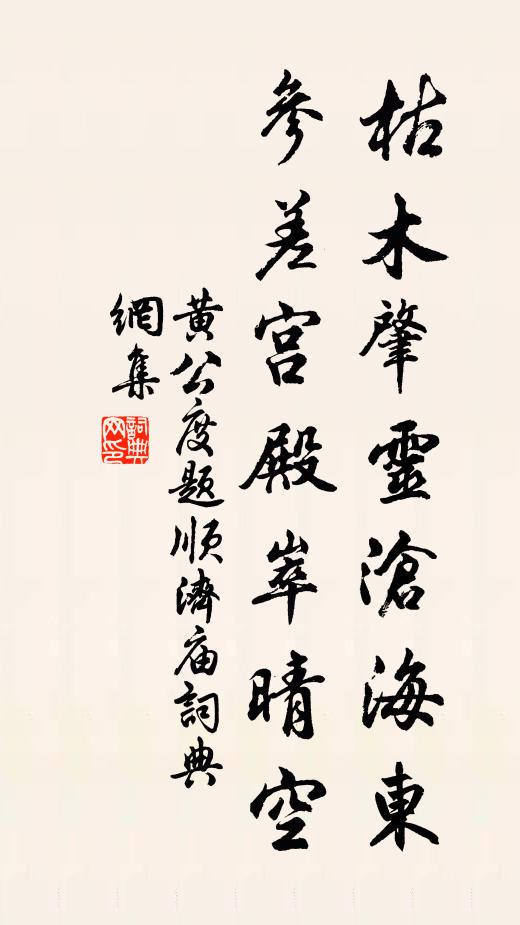 枯木肇靈滄海東
參差宫殿崒晴空
黄公度题顺濟庙詞典
網集
詞典
网印